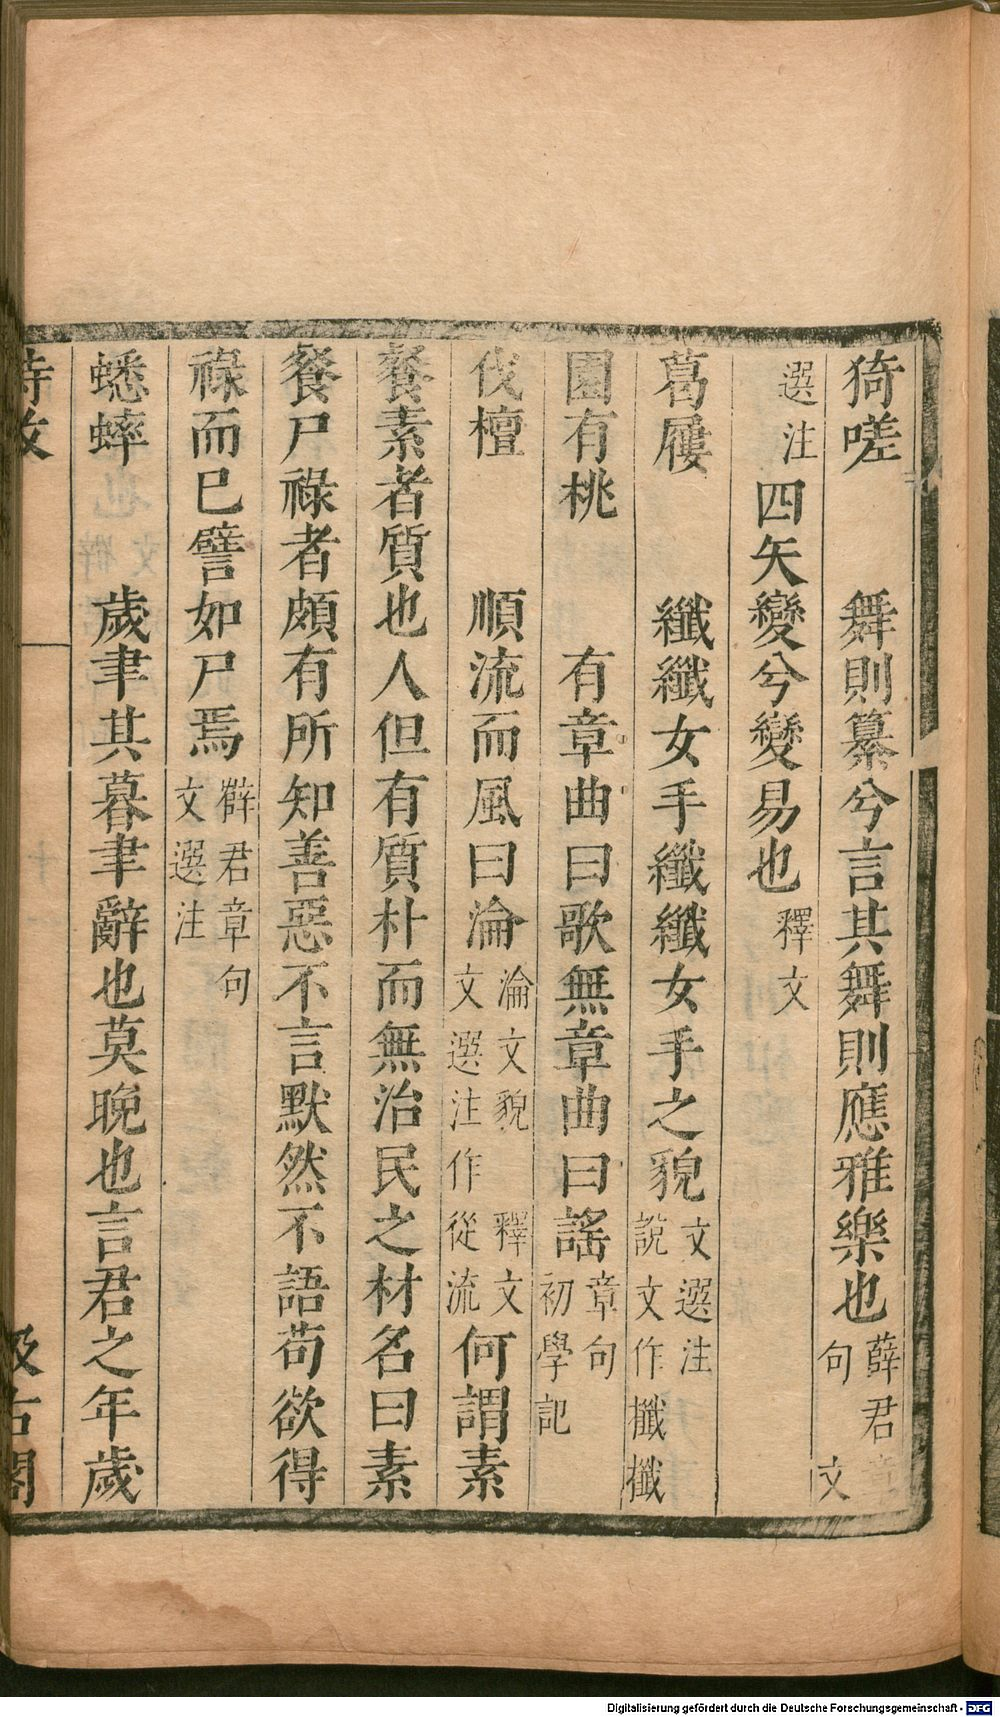 猗嗟　舞則纂兮言其舞則應雅樂也薛君章句　文
選注四矢變兮變易也釋文
葛屨　纖纖女手纖纖女手之貌文選注說文作攕攕
園有桃　有章曲曰歌無章曲曰謠章句初學記
伐檀　順流而風曰淪淪文貌釋文文選注作從流何謂素
餐素者質也人但有質朴而無治民之材名曰素
餐尸祿者頗有所知善惡不言默然不語苟欲得
祿而已譬如尸焉薛君章句文選注
蟋蟀　歲聿其暮聿辭也莫晚也言君之年歲
詩攷
汲古閣
Digitalisierung gefördert durch die Deutsche Forschungsgemeinschaft - DFG